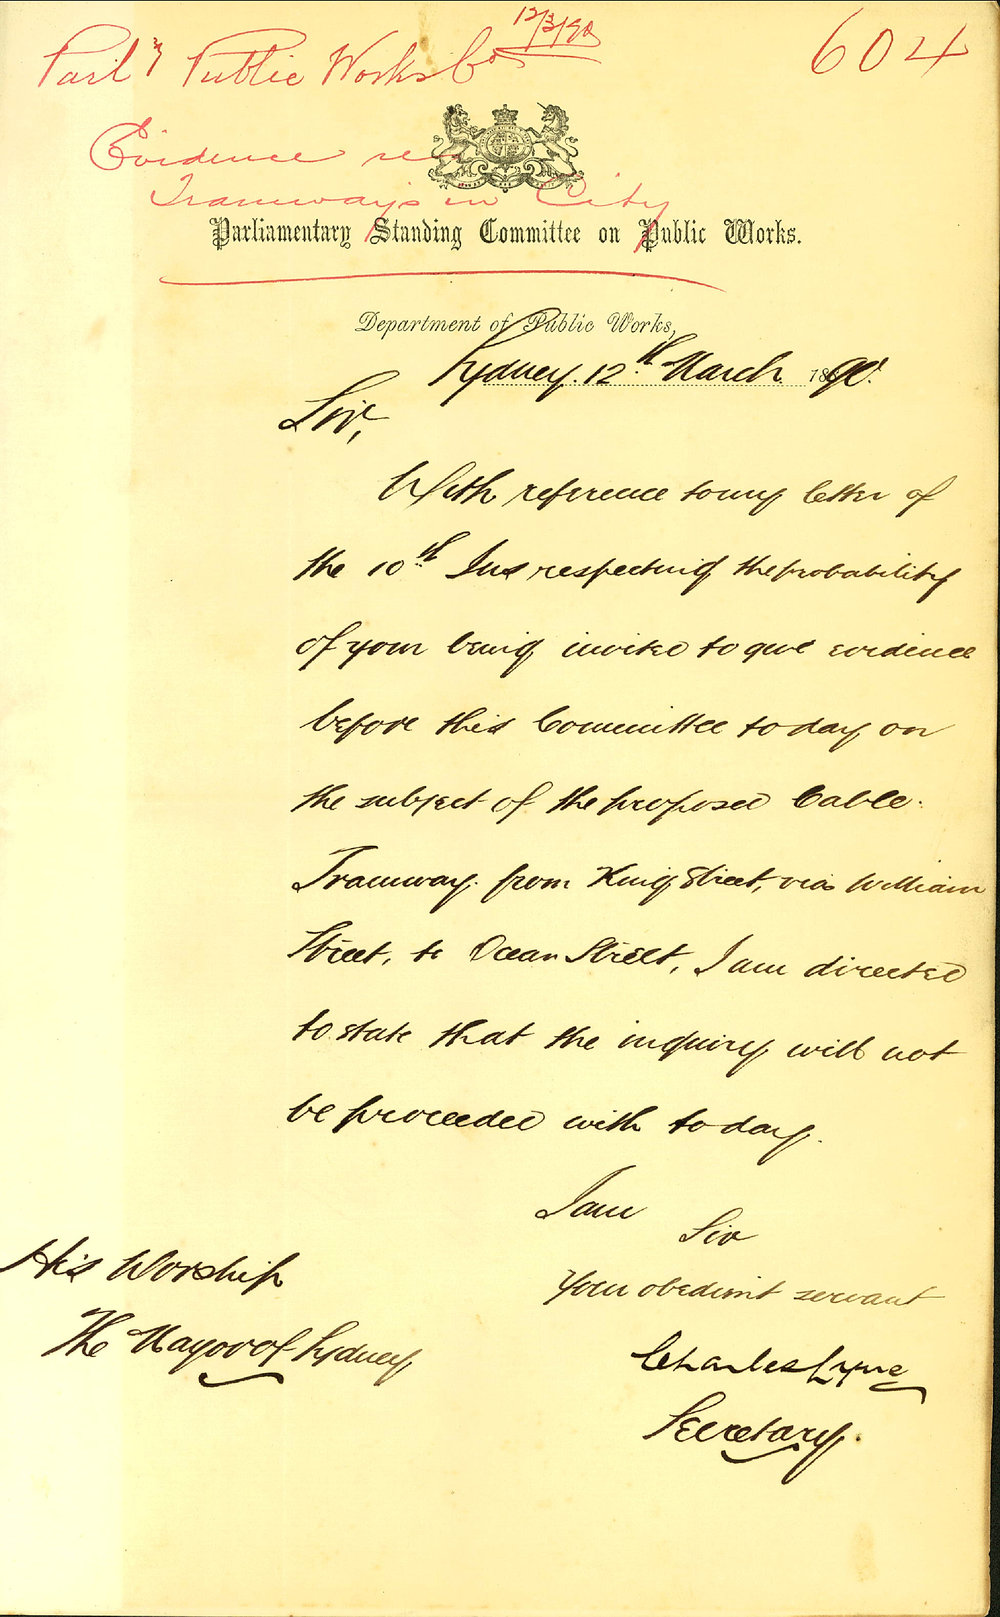 12/3/90
Parly Public Works Co 604
Evidence re
Tramways in City
Parliamentary Standing Committee on Public Works.
Department of Public Works,
Sydney. 12th March 1890.
Sir,
With reference to my letter of
the 10th Ins respecting the probability
of your being invited to give evidence
before this Committee today on
the subject of the proposed Cable
Tramway from King Street, via William
Street, to Ocean Street, I am directed
to state that the inquiry will not
be proceeded with today.
I am
Sir
Your obedient servant
Charles Lyne
Secretary.
His Worship
The Mayor of Sydney